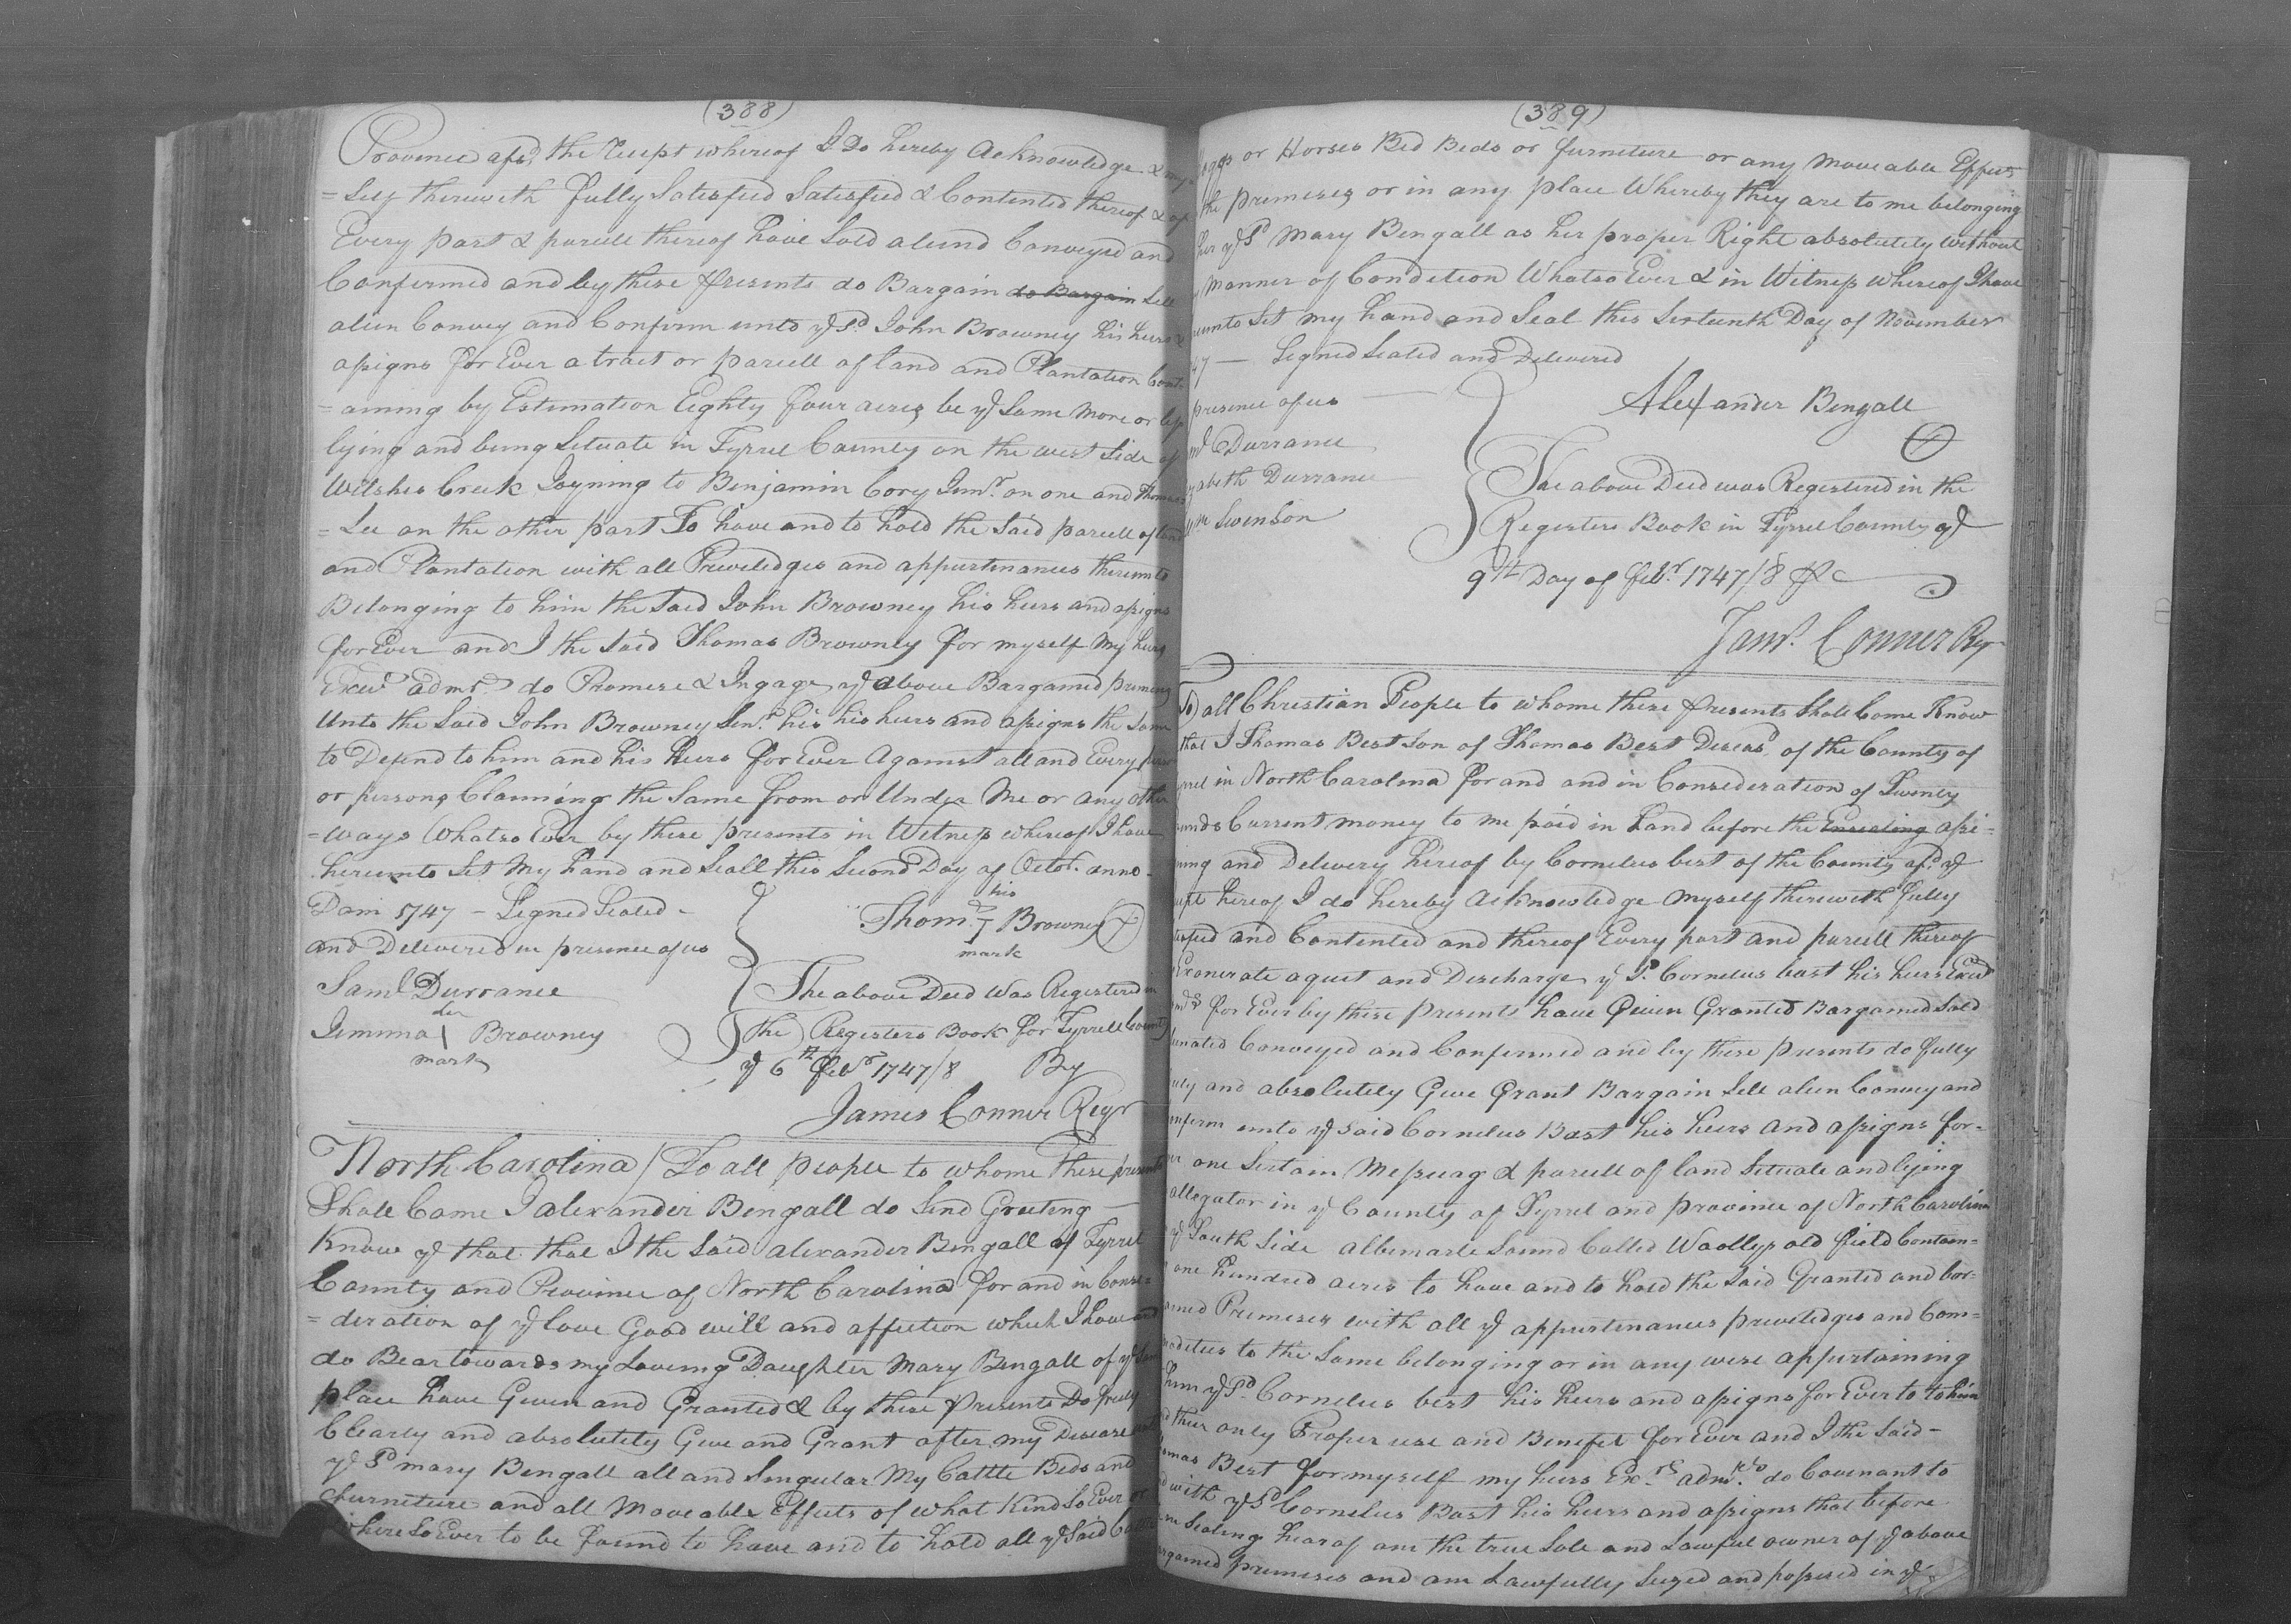 (388)
Province afsd, the Recept whereof I Do hereby Acknowledge & my=
=self therewith fully Satesfied Satesfied & Contented thereof & of
Every part & parcell thereof have Sold aliend Conveyed and
Confirmed and by these presents do Bargain do Bargain Sell
alien Convey and Confirm unto ye sd John Browney his heirs &
assigns for Ever a tract or parcell of land and Plantation Cont=
=aining by Estimation Eighty four acres be ye Same more or less
lying and being Situate in Tyrrel County on the west Side of
Welshes Creek Joyning to Benjamin Cory Junr. on one and Thomas
=Lee on the other part To have and to hold the Said parcell of land
and Plantation with all Preveledges and appurtinances thereunto
Belonging to him the Said John Browney his heirs and assigns
for Ever and I the Said Thomas Browney for myself My heirs
Exers admrs do Promese & Ingage ye above Bargained premises
Unto the Said John Browney Senr. his his heirs and assigns the Same
to Defend to him and his Heirs for Ever Against all and Every person
or persons Claiming the Same from or Under Me or any other
=ways Whatso Ever by these presents in Witness whereof I have
hereunto Set My hand and Seall this Second Day of Octor. anno
Dom 1747 – Segned Sealed –
and Delevered in presence of us
Saml Durrance
Jemima her Browney
mark
his
Thoms T Browney
mark
The above Deed Was Registered in
the Registers Book for Tyrrell County
ye 6th Febr 1747/8 By
James Conner Regr
North Carolina / To all people to whome These presents
Shall Come I alexander Bengall do Send Greeting
Know ye that that I the Said alexander Bengall of Tyrrel
County and Province of North Carolina for and in Conse=
=deration of ye love Good will and affection which I have and
do Bear towards my Loveing Daughter Mary Bengall of ye Same
place have Given and Granted & by these Presents Do freely
Clearly and absolutely Give and Grant after my Disease unto
ye Sd mary Bengall all and Singular My Cattle Beds and
furniture and all Moveable Effects of what Kind So Ever or
where So Ever to be found to have and to hold all ye Said Cattle
(389)
Hoggs or Horses Bed Beds or furneture or any moveable Effects
the premeses or in any place Whereby they are to me belonging
her ye Sd Mary Bengall as her proper Right absolutely without
Manner of Condetion Whatso Ever & in Witness whereof I have
hereunto Set my hand and Seal this Sixteenth Day of November
47 — Segned Sealed and Delevered
presence of us
Saml Durrance
Elizabeth Durrance
Wm Swenson
Alexander Bengall
The above Deed was Registered in the
Registers Book in Tyrrel County ye
9th Day of Febr 1747/8 &c
Jams. Conner Regr
To all Christian People to whome these presents Shall Come Know
that I Thomas Best Son of Thomas Best Deseasd. of the County of
Tyrrel in North Carolina for and and in Consederation of Twenty
Pounds Current money to me paid in hand before the Ensealing assi=
=ning and Delevery hereof by Cornelus best of the County afsd ye
recept hereof I do hereby acknowledge myself therewith fully
satesfied and Contented and thereof Every part and parcell thereof
Exonerate aquet and Descharge ye Sd. Cornelus best his heirs Exers
admrs for Ever by these presents have Given Granted Bargained Sold
alienated Conveyed and Confirmed and by these presents do fully
freely and absolutely Give Grant Bargain Sell alien Convey and
Confirm unto ye said Cornelus Best his heirs and assigns for=
ever one Sertain Messuag & parcell of land Situate and lying
allegator in ye County of Tyrrel and province of North Carolina
ye South Side albemarle Sound Called Woollys old field Contain=
one hundred acres to have and to hold the Said Granted and bar=
gained Premeses with all ye appurtenances preveledges and Com=
modeties to the Same belonging or in any wise appurtaining
him ye Sd Cornelus best his heirs and assigns for Ever to to him
and their only Proper use and Benefet for Ever and I the Said –
Thomas Best for myself my heirs Exrs. admrs. &c do Covenant to
and with ye Sd Cornelus Best his heirs and assigns that before
the Sealing hearof am the true Sole and Lawful owner of ye above
Bargained premeses and am Lawfully Seized and possessed in ye